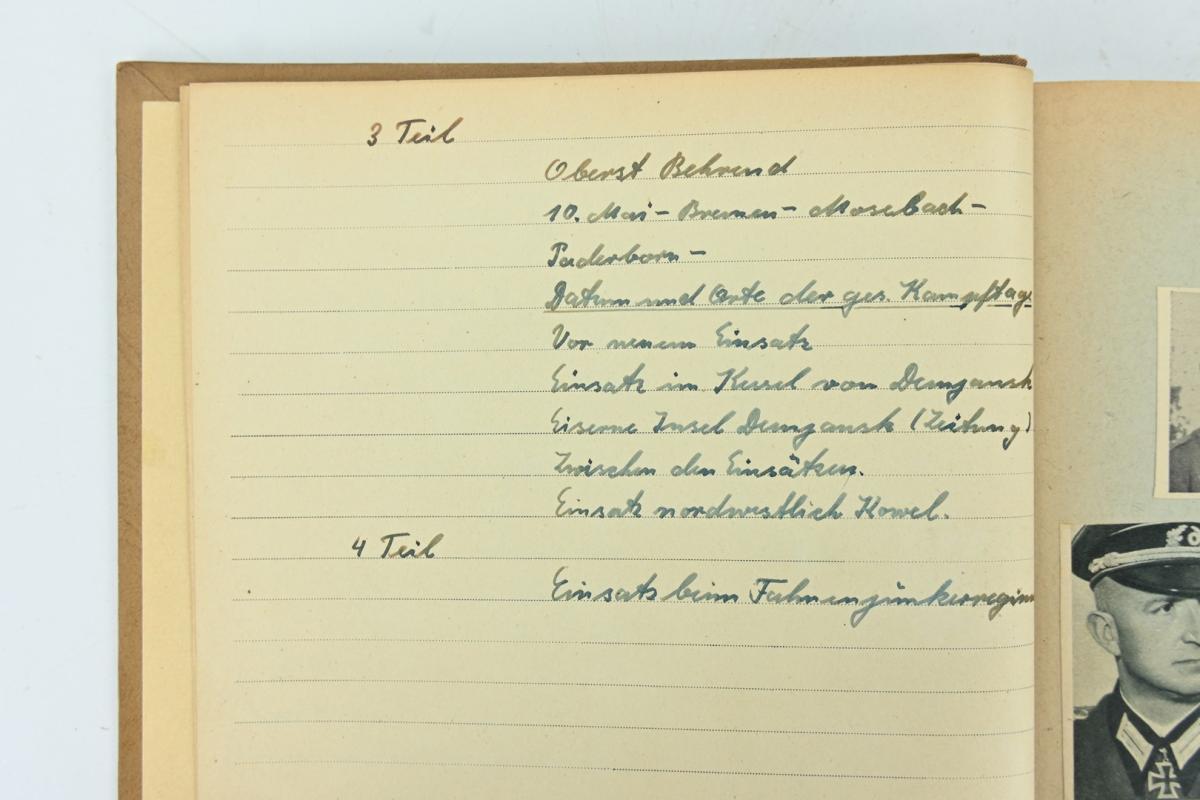 3 Teil
Oberst Behrend
10. Mai - Bremen - Mosebach -
Paderborn -
Datum und Orte der ges. Kampftag
Vor neuem Einsatz
Einsatz im Kessel vom Demjansk
Eiserne Insel Demjansk (Zeitung)
Zwischen den Einsätzen.
Einsatz nordwestlich Kowel.
4 Teil
Einsatz beim Fahnenjunkerregim